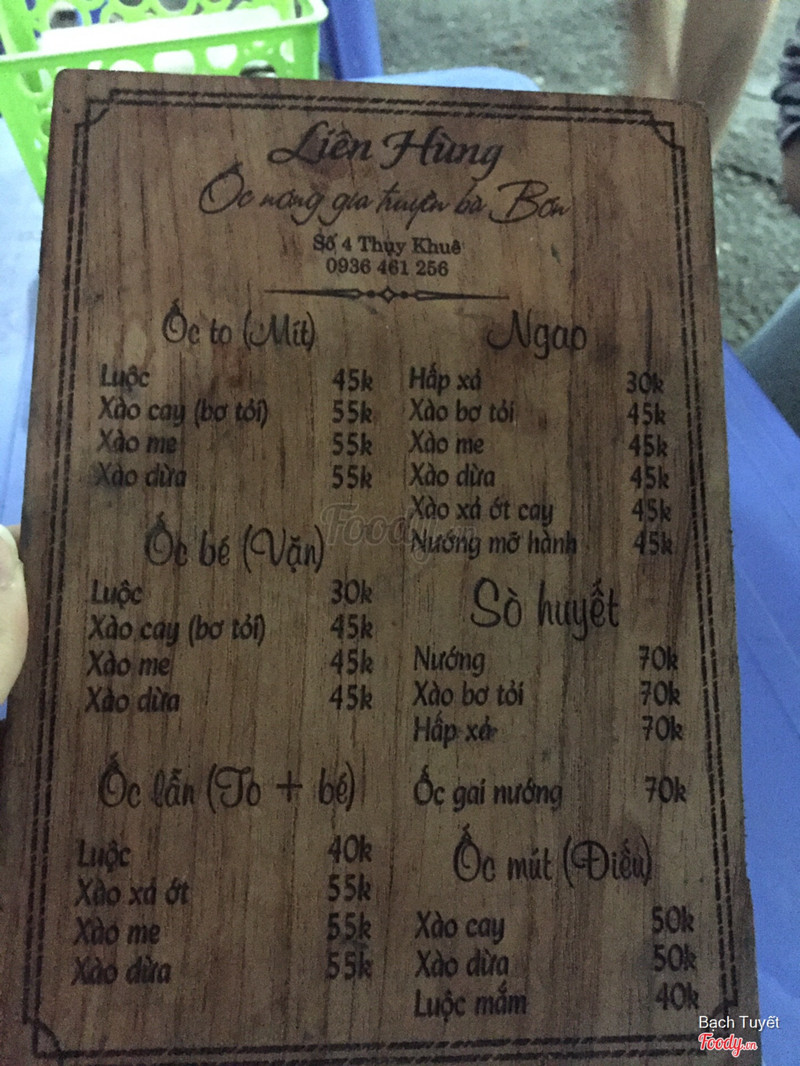 Liên Hùng
Ốc nóng gia truyền bà Bơn
Số 4 Thụy Khuê
0936 461 256
Ốc to (Mít)
Luộc 45k
Xào cay (bơ tỏi) 55k
Xào me 55k
Xào dừa 55k
Ốc bé (Vặn)
Luộc 30k
Xào cay (bơ tỏi) 45k
Xào me 45k
Xào dừa 45k
Ốc lẫn (To + bé)
Luộc 40k
Xào xả ớt 55k
Xào me 55k
Xào dừa 55k
Ngao
Hấp xả 30k
Xào bơ tỏi 45k
Xào me 45k
Xào dừa 45k
Xào xả ớt cay 45k
Nướng mỡ hành 45k
Sò huyết
Nướng 70k
Xào bơ tỏi 70k
Hấp xả 70k
Ốc gai nướng 70k
Ốc mút (Điếu)
Xào cay 50k
Xào dừa 50k
Luộc mắm 40k
Foody.vn
Bạch Tuyết
Foody.vn